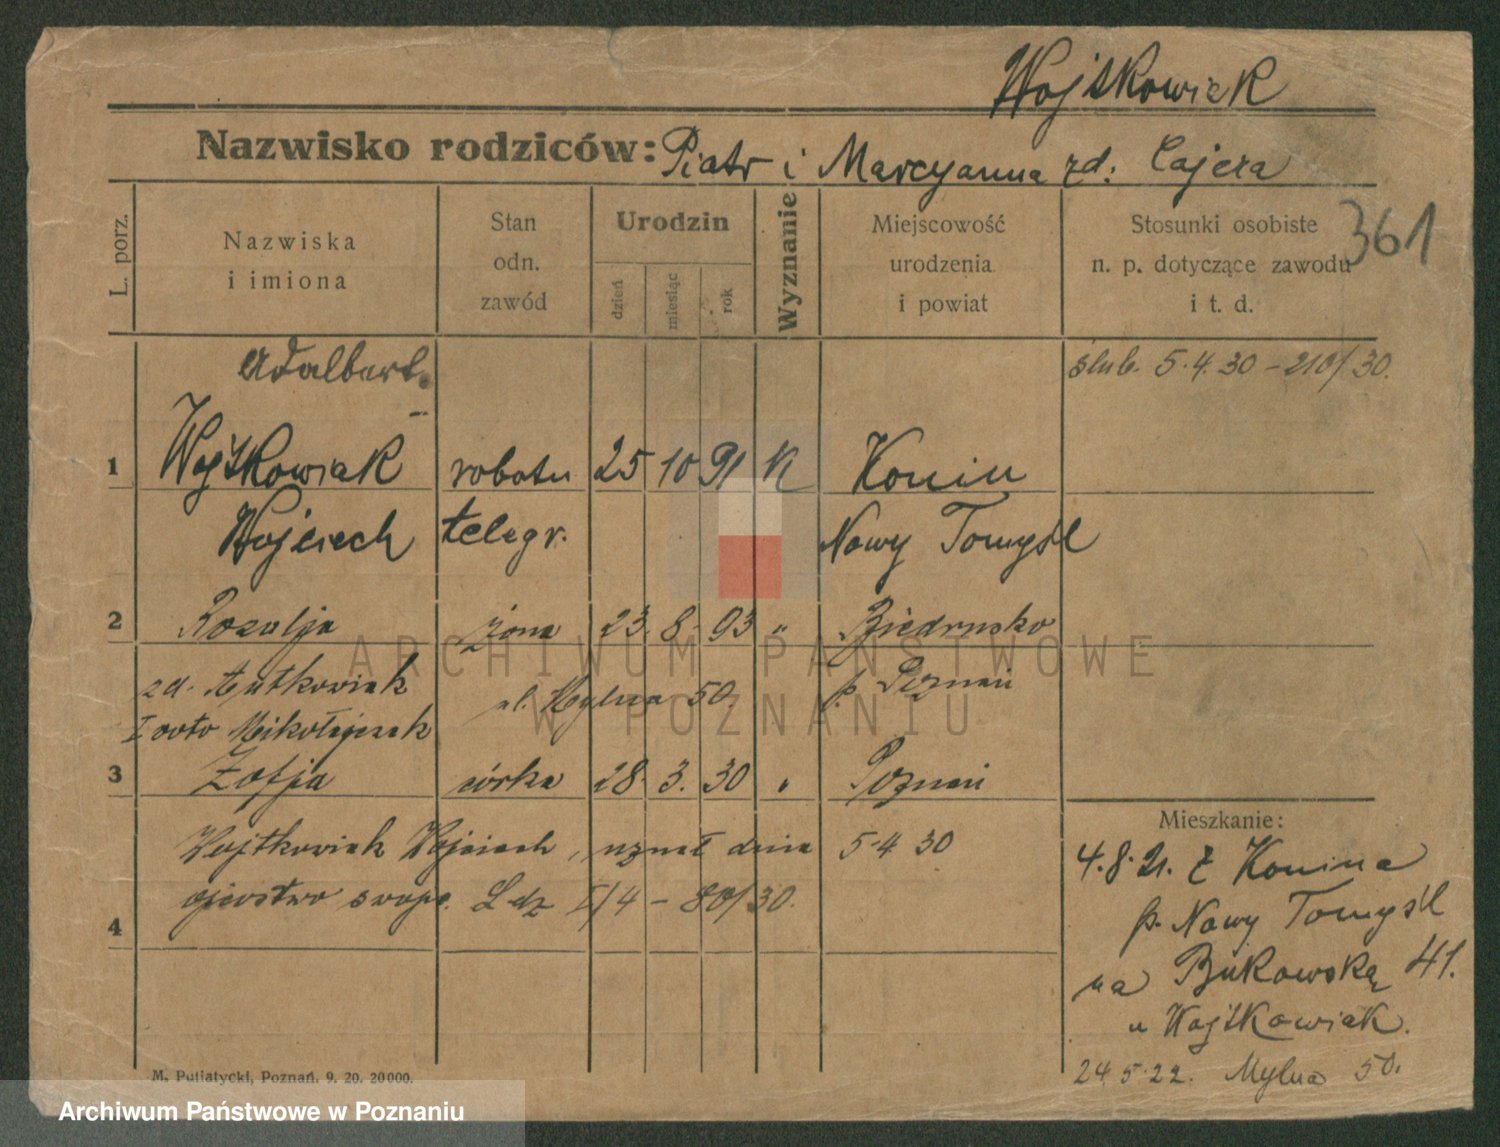 Wojtkowiak
Nazwisko rodziców: Piotr i Marcyanna zd: Cajera
361
L. porz.
Nazwiska i imiona
Stan odn. zawód
Urodzin
dzień
miesiąc
rok
Wyznanie
Miejscowość urodzenia i powiat
Stosunki osobiste n. p. dotyczące zawodu i t. d.
Adalbert
ślub. 5.4.30 – 210/30.
1 Wojtkowiak robotn 25 10 91 K Konin
Wojciech telegr. Nowy Tomyśl
2 Rozalja żona 23. 8. 93 " Biedrusko
zd. Antkowiak ul. Mylna 50. p. Poznań
I voto Mikołajczak
3 Zofja córka 28. 3. 30 " Poznań
Wojtkowiak Wojciech, uznał dnia 5.4 30
ojcostwo swoje. L dz I/4 – 80/30.
4
Mieszkanie:
4.8.21. z Konina
p. Nowy Tomyśl
na Bukowską 41.
u Wojtkowiak.
24.5.22. Mylna 50.
M. Putiatycki, Poznań. 9. 20. 20000.
ARCHIWUM PAŃSTWOWE
W POZNANIU
Archiwum Państwowe w Poznaniu